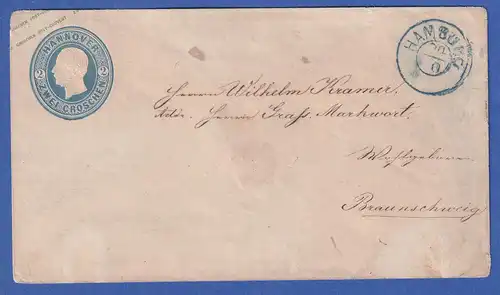 HANNOVER
2 2
ZWEI GROSCHEN
HAMBURG
Herrn Wilhelm Kramer,
Adr. Herrn Grafs. Markwort.
Wohlgeboren
Braunschweig